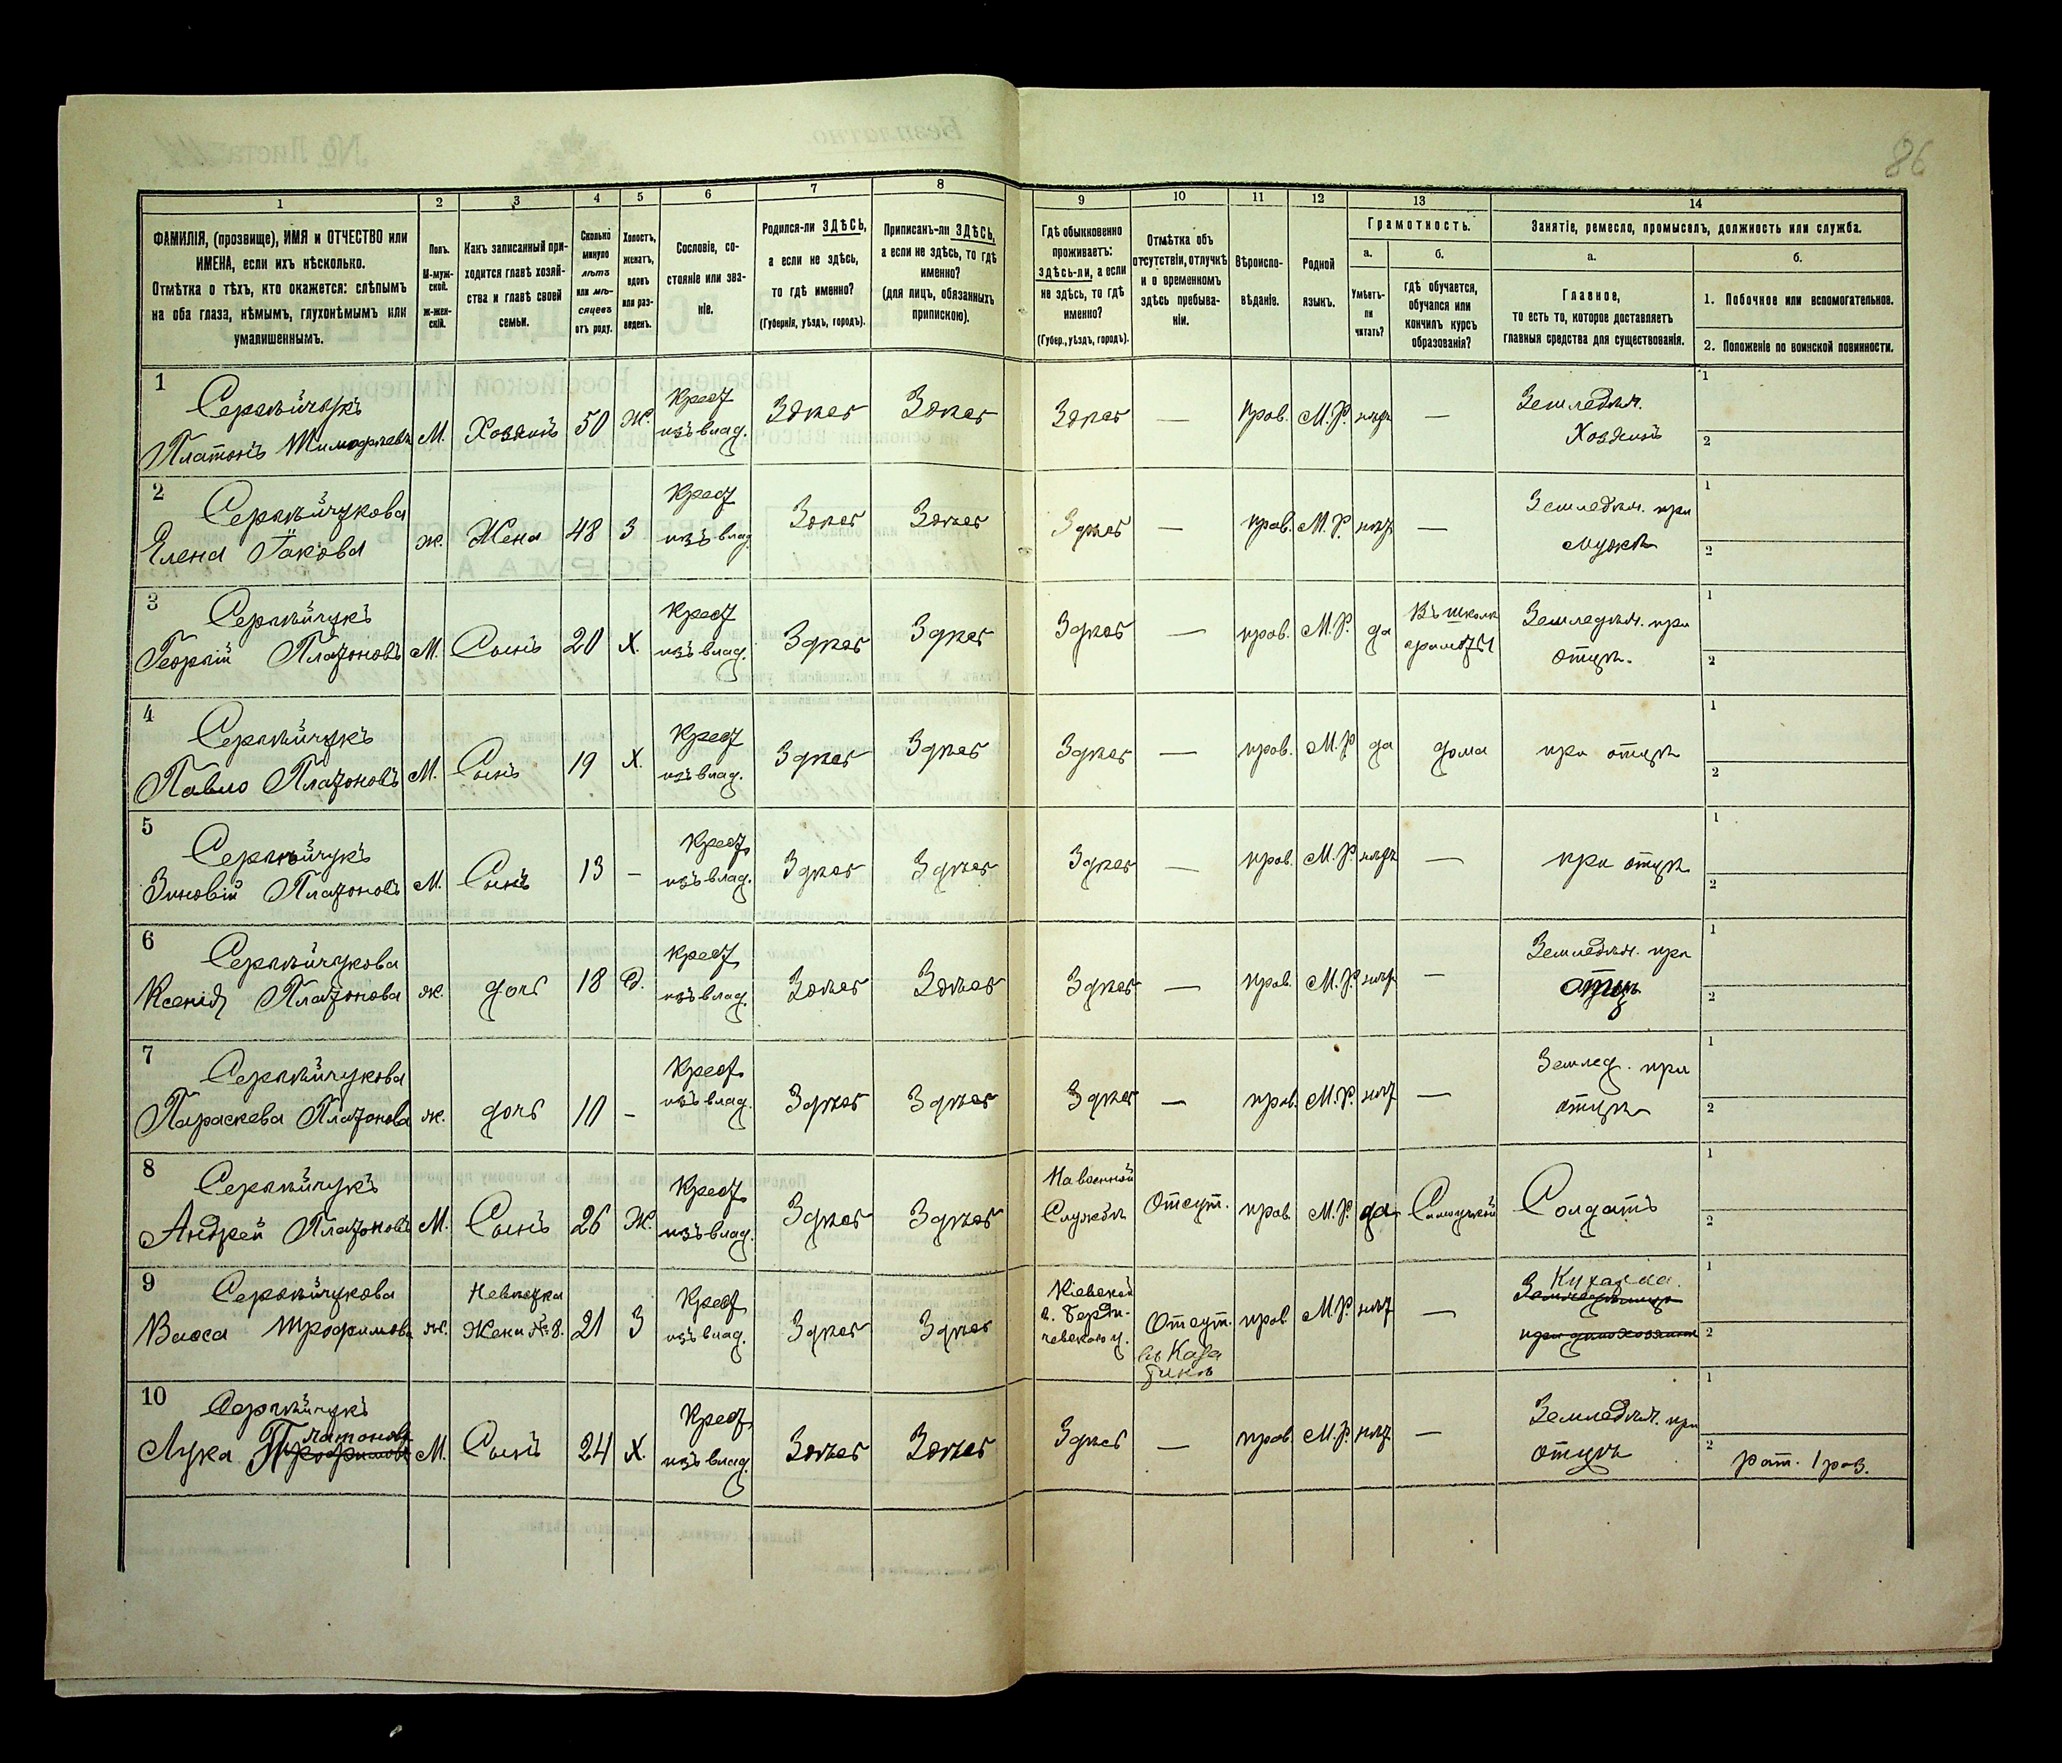 86
1 2 3 4 5 6 7 8 9 10 11 12 13 14
ФАМИЛІЯ, (прозвище), ИМЯ и ОТЧЕСТВО или
ИМЕНА, если ихъ нѣсколько.
Отмѣтка о тѣхъ, кто окажется: слѣпымъ
на оба глаза, нѣмымъ, глухонѣмымъ или
умалишеннымъ.
Полъ.
М-муж-
ской.
ж-жен-
скій.
Какъ записанный при-
ходится главѣ хозяй-
ства и главѣ своей
семьи.
Сколько
минуло
лѣтъ
или мѣ-
сяцевъ
отъ роду.
Холостъ,
женатъ,
вдовъ
или раз-
веденъ.
Сословіе, со-
стояніе или зва-
ніе.
Родился-ли ЗДѢСЬ,
а если не здѣсь,
то гдѣ именно?
(Губернія, уѣздъ, городъ).
Приписанъ-ли ЗДѢСЬ,
а если не здѣсь, то гдѣ
именно?
(для лицъ, обязанныхъ
припискою).
Гдѣ обыкновенно
проживаетъ:
здѣсь-ли, а если
не здѣсь, то гдѣ
именно?
(Губер., уѣздъ, городъ).
Отмѣтка объ
отсутствіи, отлучкѣ
и о временномъ
здѣсь пребыва-
ніи.
Вѣроиспо-
вѣданіе.
Родной
языкъ.
Грамотность.
а.
Умѣетъ-
ли
читать?
б.
гдѣ обучается,
обучался или
кончилъ курсъ
образованія?
Занятіе, ремесло, промыселъ, должность или служба.
а.
Главное,
то есть то, которое доставляетъ
главныя средства для существованія.
б.
1. Побочное или вспомогательное.
2. Положеніе по воинской повинности.
1
Платонъ М. Хозяинъ 50 Ж. Крест изъ влад. Здѣсь Здѣсь Здѣсь — Прав. М.Р. нѣтъ — Земледѣл. Хозяинъ
1
2
2
Елена Іакова ж. Жена 48 З Крест изъ влад. Здѣсь Здѣсь Здѣсь — прав. М.Р. нѣтъ — Земледѣл. при мужѣ
1
2
3
Георгій Платоновъ М. Сынъ 20 Х. Крест изъ влад. Здѣсь Здѣсь Здѣсь — прав. М.Р. да Въ школѣ грамоты Земледѣл. при отцѣ.
1
2
4
Павло Платоновъ М. Сынъ 19 Х. Крест изъ влад. Здѣсь Здѣсь Здѣсь — прав. М.Р. да дома при отцѣ
1
2
5
Зиновій Платоновъ М. Сынъ 13 – Крест. изъ влад. Здѣсь Здѣсь Здѣсь — прав. М.Р. нѣтъ — при отцѣ
1
2
6
Ксенія Платонова ж. дочь 18 Д. Крест изъ влад. Здѣсь Здѣсь Здѣсь — прав. М.Р. нѣтъ — Земледѣл. при отцѣ
1
2
7
Параскева Платонова ж. дочь 10 – Крест. изъ влад. Здѣсь Здѣсь Здѣсь — прав. М.Р. нѣт — Землед. при отцѣ
1
2
8
Андрей Платоновъ М. Сынъ 26 Ж. Крест изъ влад. Здѣсь Здѣсь На военной Службѣ Отсут. прав. М.Р. да Солдатъ
1
2
9
Васса Трофимова ж. Невѣстка Жена №8. 21 З Крест изъ влад. Здѣсь Здѣсь Кіевской г. Берди- чевского у. Отсут. въ Каза тинѣ прав М.Р. нѣт — Кухарка.
1
2
10
Лука Платоновъ М. Сынъ 24 Х. Крест изъ влад. Здѣсь Здѣсь Здѣсь — прав. М.Р. нѣт — Земледѣл. при отцѣ
1
2 рат. 1 раз.